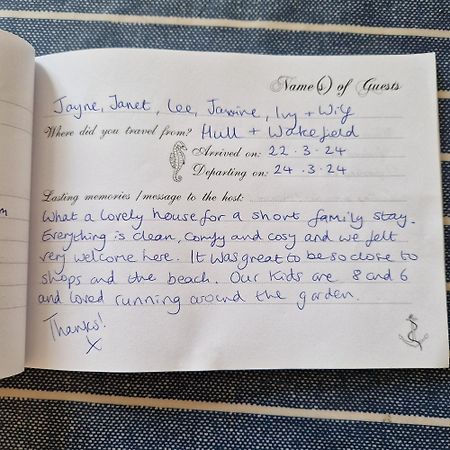 Name(s) of Guests
Jayne, Janet, Lee, Jasmine, Ivy + Wilf
Where did you travel from? Hull + Wakefield
Arrived on: 22.3.24
Departing on: 24.3.24
Lasting memories / message to the host:
What a lovely house for a short family stay.
Everything is clean, comfy and cosy and we felt
very welcome here. It was great to be so close to
shops and the beach. Our kids are 8 and 6
and loved running around the garden.
Thanks!
x